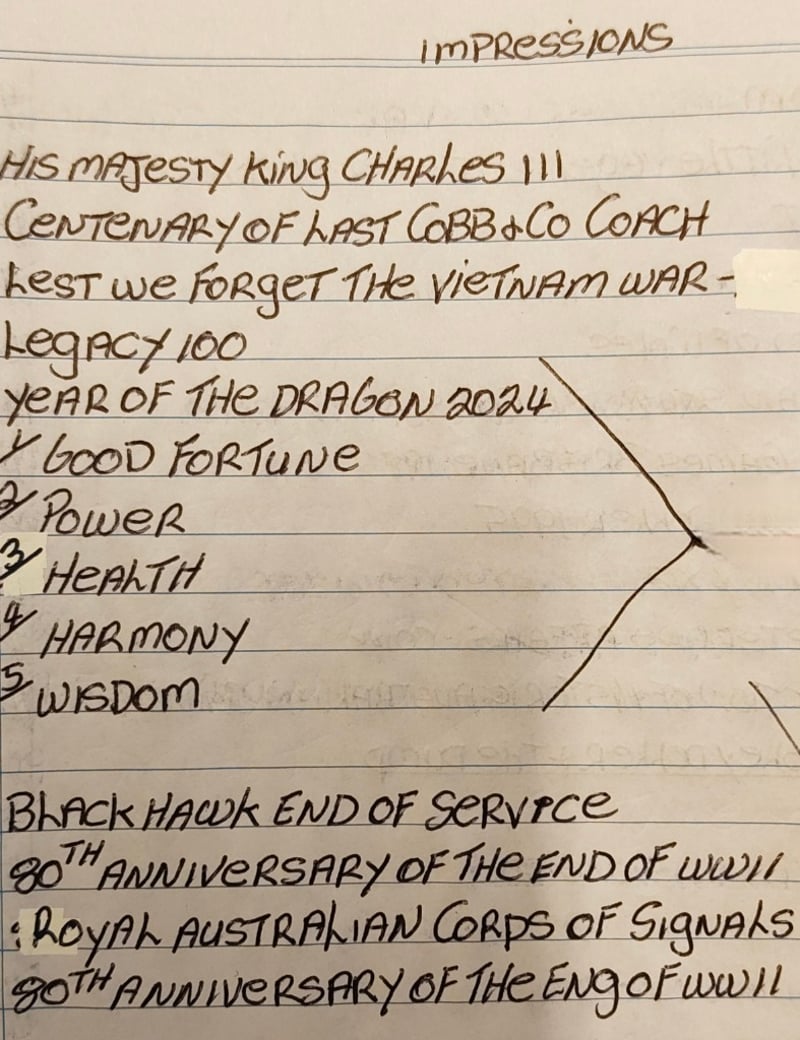 IMPRESSIONS
HIS MAJESTY KING CHARLES III
CENTENARY OF LAST COBB & CO COACH
LEST WE FORGET THE VIETNAM WAR -
LEGACY 100
YEAR OF THE DRAGON 2024
1/ GOOD FORTUNE
2/ POWER
3/ HEALTH
4/ HARMONY
5/ WISDOM
BLACK HAWK END OF SERVICE
80TH ANNIVERSARY OF THE END OF WWII
: ROYAL AUSTRALIAN CORPS OF SIGNALS
80TH ANNIVERSARY OF THE ENG OF WWII